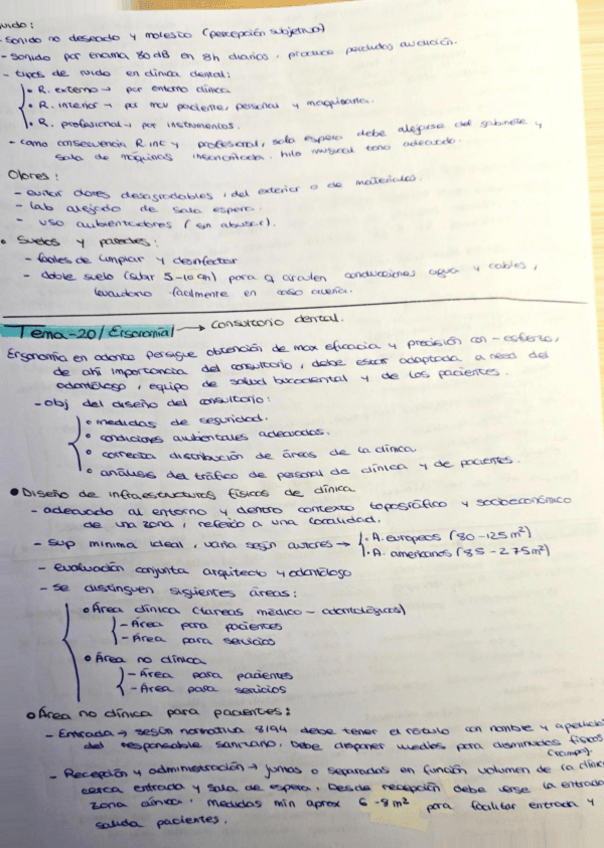 ruido:
- sonido no deseado y molesto (percepción subjetiva)
- sonido por encima 80 dB en 8h diarias, produce pérdidas audición.
- tipos de ruido en clínica dental:
• R. externo → por entorno clínica
• R. interior → por mov paciente, personal y maquinaria.
• R. profesional → por instrumentos.
- como consecuencia R. int y profesional, sala espera debe alejarse del gabinete y
sala de máquinas insonorizada. hilo musical tono adecuado.
Olores:
- evitar olores desagradables, del exterior o de materiales.
- lab alejado de sala espera.
- uso ambientadores (sin abusar).
• Suelos y paredes:
- fáciles de limpiar y desinfectar
- doble suelo (subir 5-10 cm) para q circulen conducciones agua y cables,
levantarlo fácilmente en caso avería.
Tema-20/Ergonomía/ → consultorio dental.
Ergonomía en odonto persigue obtención de max eficacia y precisión con - esfuerzo,
de ahí importancia del consultorio, debe estar adaptada a need del
odontólogo, equipo de salud bucodental y de los pacientes.
- obj del diseño del consultorio:
• medidas de seguridad.
• condiciones ambientales adecuadas.
• correcta distribución de áreas de la clínica
• análisis del tráfico de personal de clínica y de pacientes.
• Diseño de infraestructuras físicas de clínica
- adecuado al entorno y dentro contexto topográfico y socioeconómico
de una zona, referido a una localidad.
- sup mínima ideal, varía según autores → • A. europeos (80-125 m²)
• A. americanos (85-275 m²)
- evaluación conjunta arquitecto y odontólogo
- se distinguen siguientes áreas:
• Área clínica (tareas médico-odontológicas)
- Área para pacientes
- Área para servicios
• Área no clínica
- Área para pacientes
- Área para servicios
• Área no clínica para pacientes:
- Entrada → según normativa 8/94 debe tener el rótulo con nombre y apellidos
del responsable sanitario. Debe disponer medios para disminuidos físicos
(rampa).
- Recepción y administración → juntas o separadas en función volumen de la clínica
cerca entrada y sala de espera. Desde recepción debe verse la entrada
zona clínica. medidas min aprox 6-8 m² para facilitar entrada y
salida pacientes.